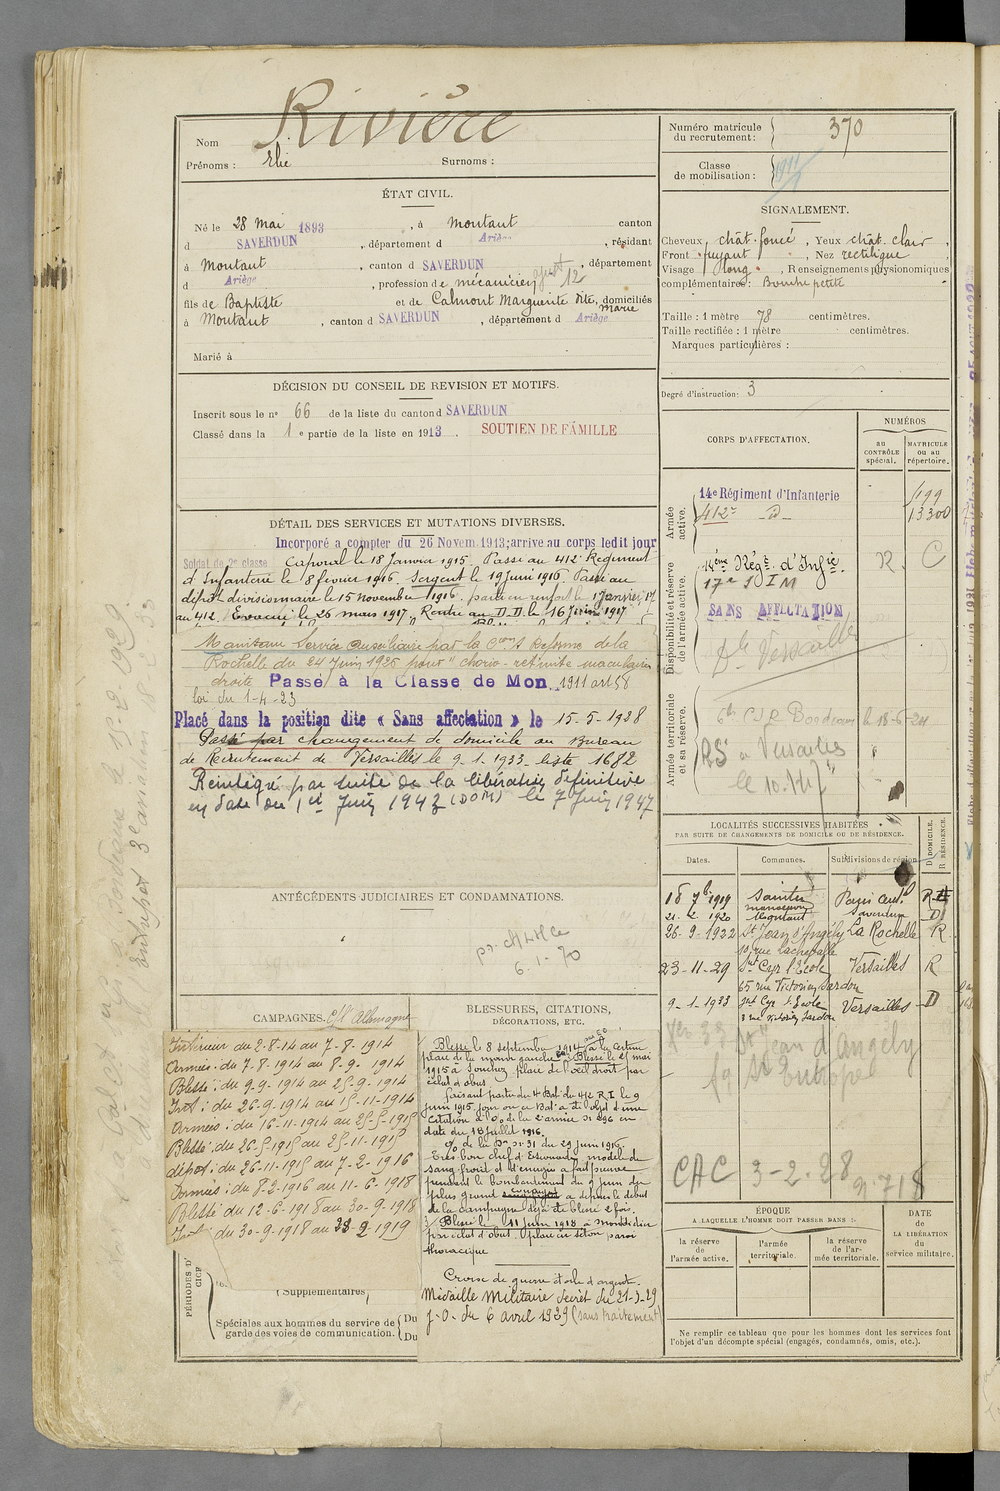 Nom Rivière
Prénoms : Elie Surnoms :
ÉTAT CIVIL.
Né le 28 mai 1893, à Montaut canton
d SAVERDUN, département d Ariège, résidant
à Montaut, canton d SAVERDUN, département
d Ariège, profession de mécanicien ajust 12
fils de Baptiste et de Calmont Marguerite dite Marie, domiciliés
à Montaut, canton d SAVERDUN, département d Ariège
Marié à
DÉCISION DU CONSEIL DE REVISION ET MOTIFS.
Inscrit sous le nº 66 de la liste du canton d SAVERDUN
Classé dans la 1e partie de la liste en 1913. SOUTIEN DE FAMILLE
DÉTAIL DES SERVICES ET MUTATIONS DIVERSES.
Incorporé a compter du 26 Novem. 1913; arrive au corps ledit jour
Soldat de 2e classe Caporal le 18 Janvier 1915. Passé au 412e Régiment
d'Infanterie le 8 février 1916. Sergent le 19 juin 1916. Passé au
dépôt divisionnaire le 15 novembre 1916. parti en renfort le 1 Janvier 17
au 412. Evacué le 26 mars 1917. Rentré au D.D. le 16 juin 1917
Maintenu Service auxiliaire par la Cion de Réforme de la
Rochelle du 24 Juin 1925 pour "chorio-rétinite maculaire
droite Passé à la Classe de Mon. 1911 art 58
loi du 1-4-23
Placé dans la position dite « Sans affectation » le 15-5-1928
Passé par changement de domicile au Bureau
de Recrutement de Versailles le 9-1-1933 liste 1682
Réintégré par suite de la libération définitive
en date du 1er Juin 1943 (DOM) le 7 Juin 1947
ANTÉCÉDENTS JUDICIAIRES ET CONDAMNATIONS.
6-1-70
CAMPAGNES. C/ Allemagne
Intérieur du 2-8-14 au 7-8-1914
Armées : du 7-8-1914 au 8-9-1914
Blessé : du 9-9-1914 au 25-9-1914
Int : du 26-9-1914 au 15-11-1914
Armées : du 16-11-1914 au 25-5-1915
Blessé : du 26-5-1915 au 25-11-1915
dépôt : du 26-11-1915 au 7-2-1916
Armées : du 8-2-1916 au 11-6-1918
Blessé du 12-6-1918 au 30-9-1918
Int : du 30-9-1918 au -2-1919
PÉRIODES D'
Supplémentaires,
Spéciales aux hommes du service de garde des voies de communication. Du Du
BLESSURES, CITATIONS,
DÉCORATIONS, ETC.
Blessé le 8 septembre 1914 à
plaie de la main gauche. Blessé le 25 mai
1915 à Souchez plaie de l'œil droit par
éclat d'obus
faisant partie du 4e Bat. du 412 R.I. le 9
juin 1915 jour où ce Bat. a été l'objet d'une
citation à l'O. de la 2e armée Nº 296 en
date du 18 juillet 1916.
O/ de la Don Nº 31 du 29 juin 1916.
Très bon chef d'Escouade, modèle de
sang-froid et d'énergie a fait preuve
pendant le bombardement du 9 juin du
plus grand courage a depuis le début
de la campagne déjà été blessé 2 fois.
Blessé le 11 juin 1918 à Montdidier
par éclat d'obus. plaie en séton paroi
thoracique
Croix de guerre étoile d'argent.
Médaille Militaire décret du 21-3-29
J.O. du 6 avril 1929 (sans traitement)
Numéro matricule du recrutement : 370
Classe de mobilisation : 1911
SIGNALEMENT.
Cheveux chât. foncé, Yeux chât. clair,
Front fuyant, Nez rectiligne,
Visage long. Renseignements physionomiques
complémentaires : Bouche petite
Taille : 1 mètre 78 centimètres.
Taille rectifiée : 1 mètre centimètres.
Marques particulières :
Degré d'instruction : 3
CORPS D'AFFECTATION.
NUMÉROS
au contrôle spécial.
MATRICULE ou au répertoire.
Armée active.
14e Régiment d'Infanterie 1199
412e -d- 13300
Disponibilité et réserve de l'armée active.
14ème Régt. d'Infie. R. C
17e S I M
SANS AFFECTATION
Dle Versailles
Armée territoriale et sa réserve.
6e CSR Bordeaux le 18-6-24
RS a Versailles
LOCALITÉS SUCCESSIVES HABITÉES
PAR SUITE DE CHANGEMENTS DE DOMICILE OU DE RÉSIDENCE.
Dates. Communes. Subdivisions de région. D DOMICILE. R RÉSIDENCE.
18 7bre 1919 Paris cent. R
21-2-1920 Montaut Saverdun D
26-9-1922 St Jean d'Angély La Rochelle R
23-11-29 St Cyr l'Ecole Versailles R
65 rue Victorien Sardou
9-1-1933 St Cyr l'Ecole Versailles D
3 rue Victorien Sardou
St Jean d'Angély
19 St Eutrope
CAC 3-2-28
ÉPOQUE
A LAQUELLE L'HOMME DOIT PASSER DANS :
la réserve de l'armée active.
l'armée territoriale.
la réserve de l'armée territoriale.
DATE de LA LIBÉRATION du service militaire.
Ne remplir ce tableau que pour les hommes dont les services font
l'objet d'un décompte spécial (engagés, condamnés, omis, etc.).